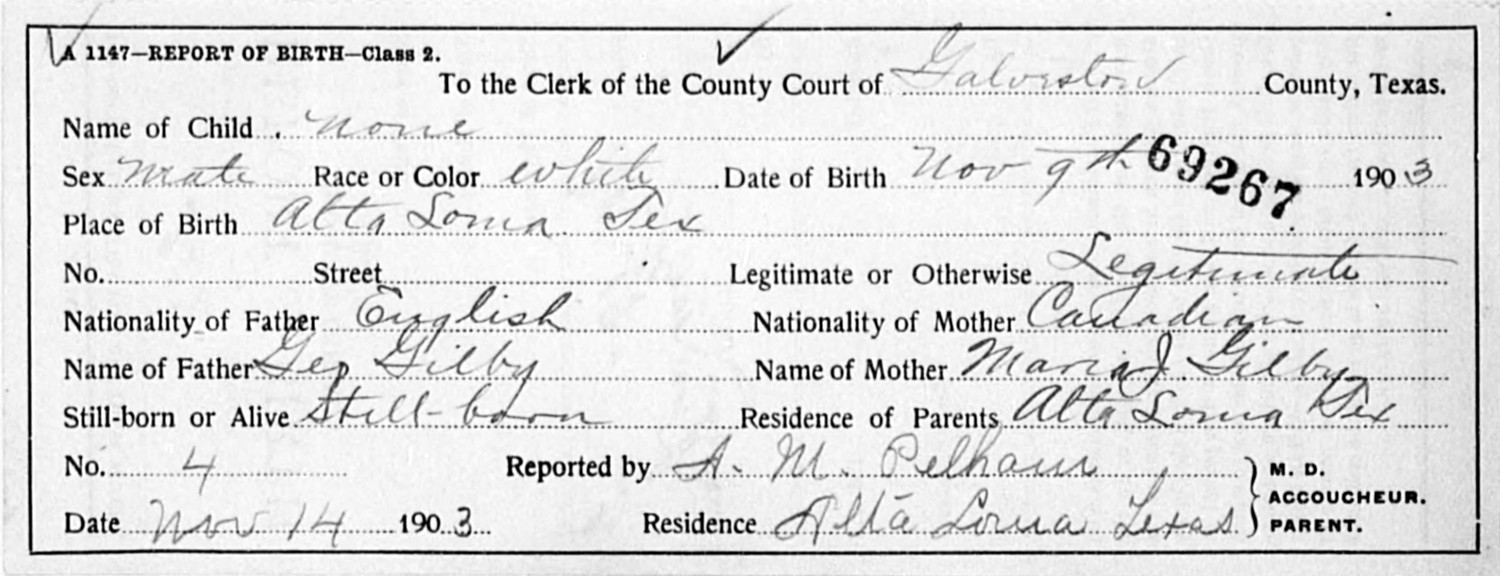 A 1147—REPORT OF BIRTH—Class 2.
To the Clerk of the County Court of Galveston County, Texas.
Name of Child . none
Sex Male Race or Color white Date of Birth Nov 9th 69267 1903
Place of Birth Alta Loma Tex
No. Street Legitimate or Otherwise Legitimate
Nationality of Father English Nationality of Mother Canadian
Name of Father Geo Gilby Name of Mother Maria J. Gilby
Still-born or Alive Still-born Residence of Parents Alta Loma Tex
No. 4 Reported by A. M. Pelham M. D.
ACCOUCHEUR.
Date Nov 14 1903 Residence Alta Loma Texas PARENT.